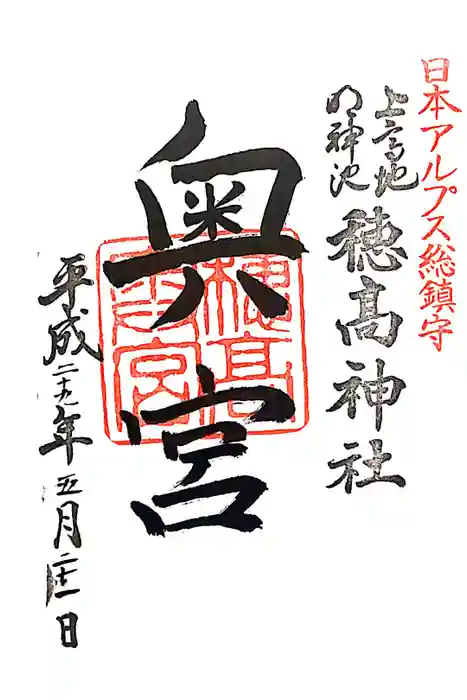 日本アルプス総鎮守
上高地
明神池
穂高神社
奥宮
穂高
奥宮
平成二十九年五月二十一日